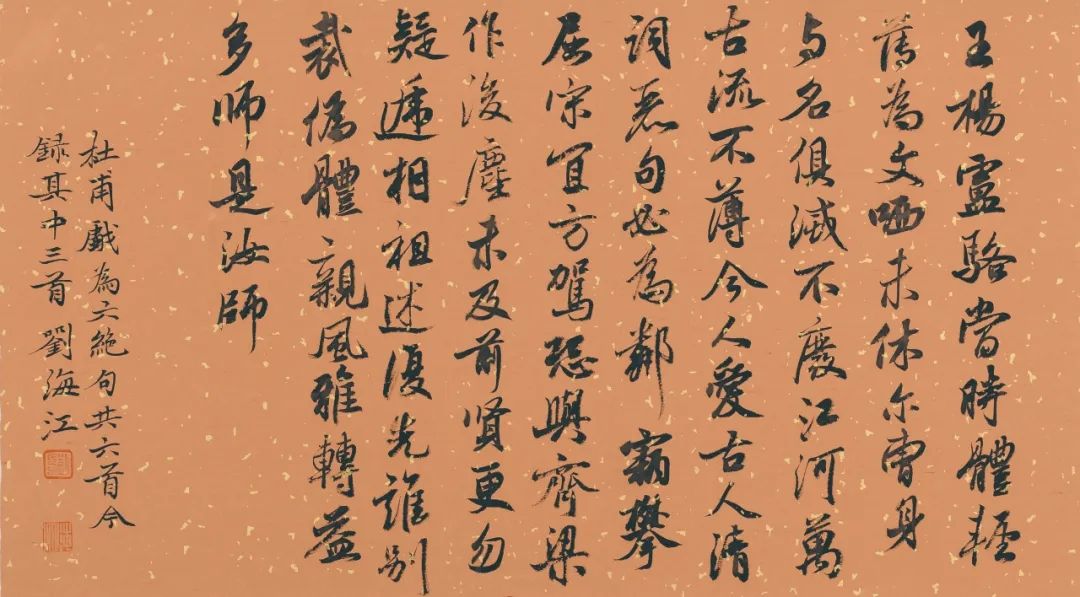 王楊盧駱當時體輕
薄為文哂未休尔曹身
与名俱滅不廢江河萬
古流不薄今人愛古人清
詞麗句必為鄰竊攀
屈宋宜方駕恐與齊梁
作後塵未及前賢更勿
疑遞相祖述復先誰別
裁偽體親風雅轉益
多師是汝師
杜甫戲為六絕句共六首今
録其中三首劉海江